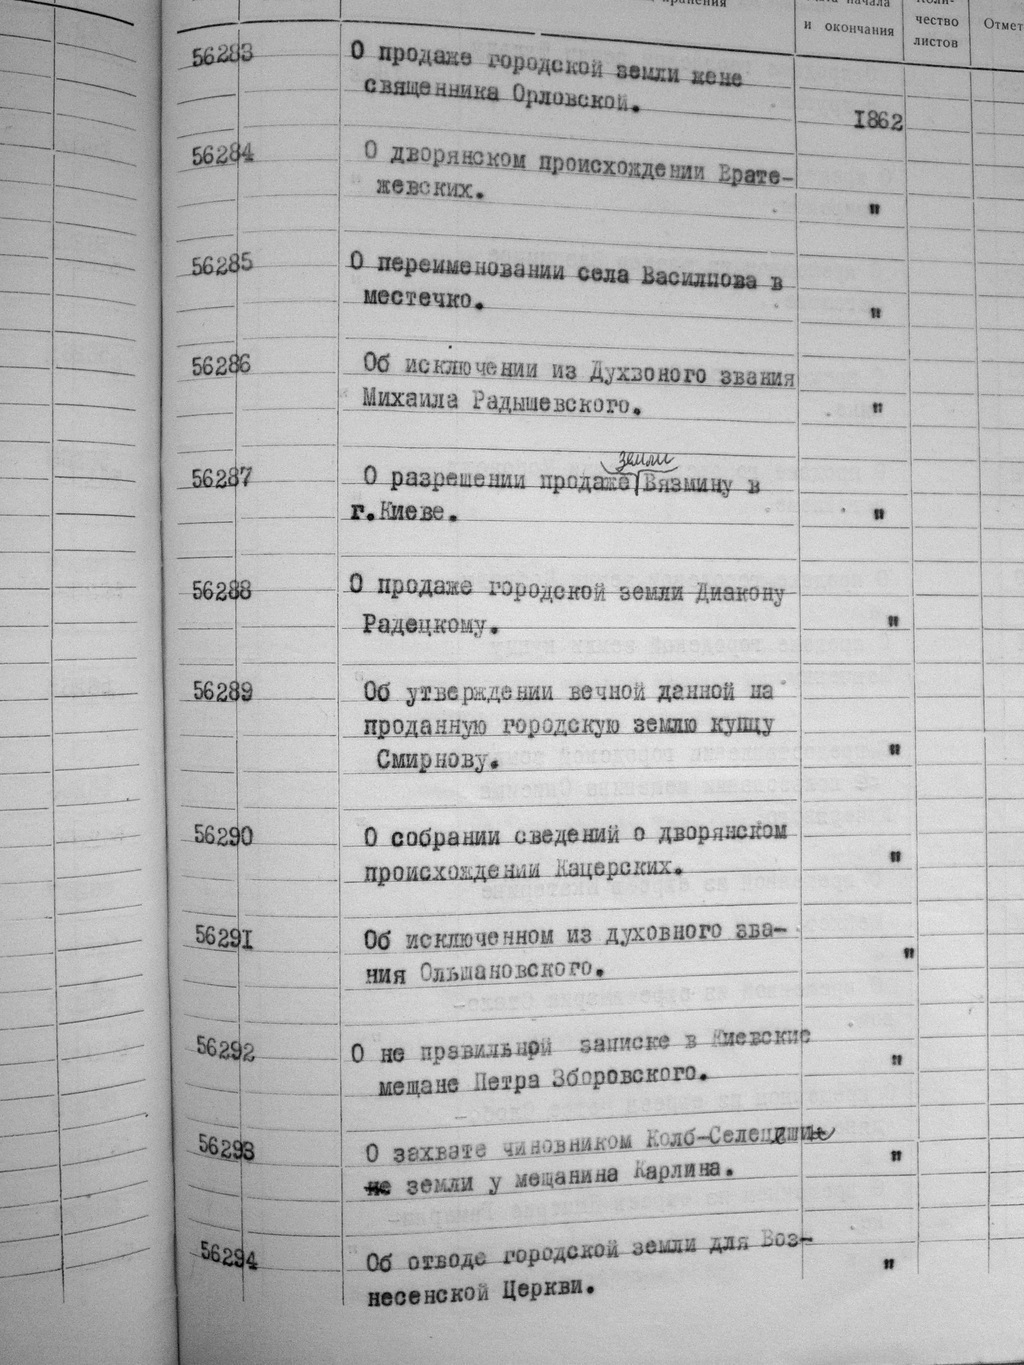 хранения
дата начала
и окончания
Коли-
чество
листов
Отмет
56283 О продаже городской земли жене
священника Орловской. 1862
56284 О дворянском происхождении Ерате-
жевских. "
56285 О переименовании села Василпова в
местечко. "
56286 Об исключении из Духвоного звания
Михаила Радышевского. "
земли
56287 О разрешении продаже Вязмину в
г.Киеве. "
56288 О продаже городской земли Диакону
Радецкому. "
56289 Об утверждении вечной данной на
проданную городскую землю купцу
Смирнову. "
56290 О собрании сведений о дворянском
происхождении Кацерских. "
56291 Об исключенном из духовного зва-
ния Ольшановского. "
56292 О не правильной записке в Киевские
мещане Петра Зборовского. "
56293 О захвате чиновником
не земли у мещанина Карлина. "
56294 Об отводе городской земли для Воз-
несенской Церкви. "